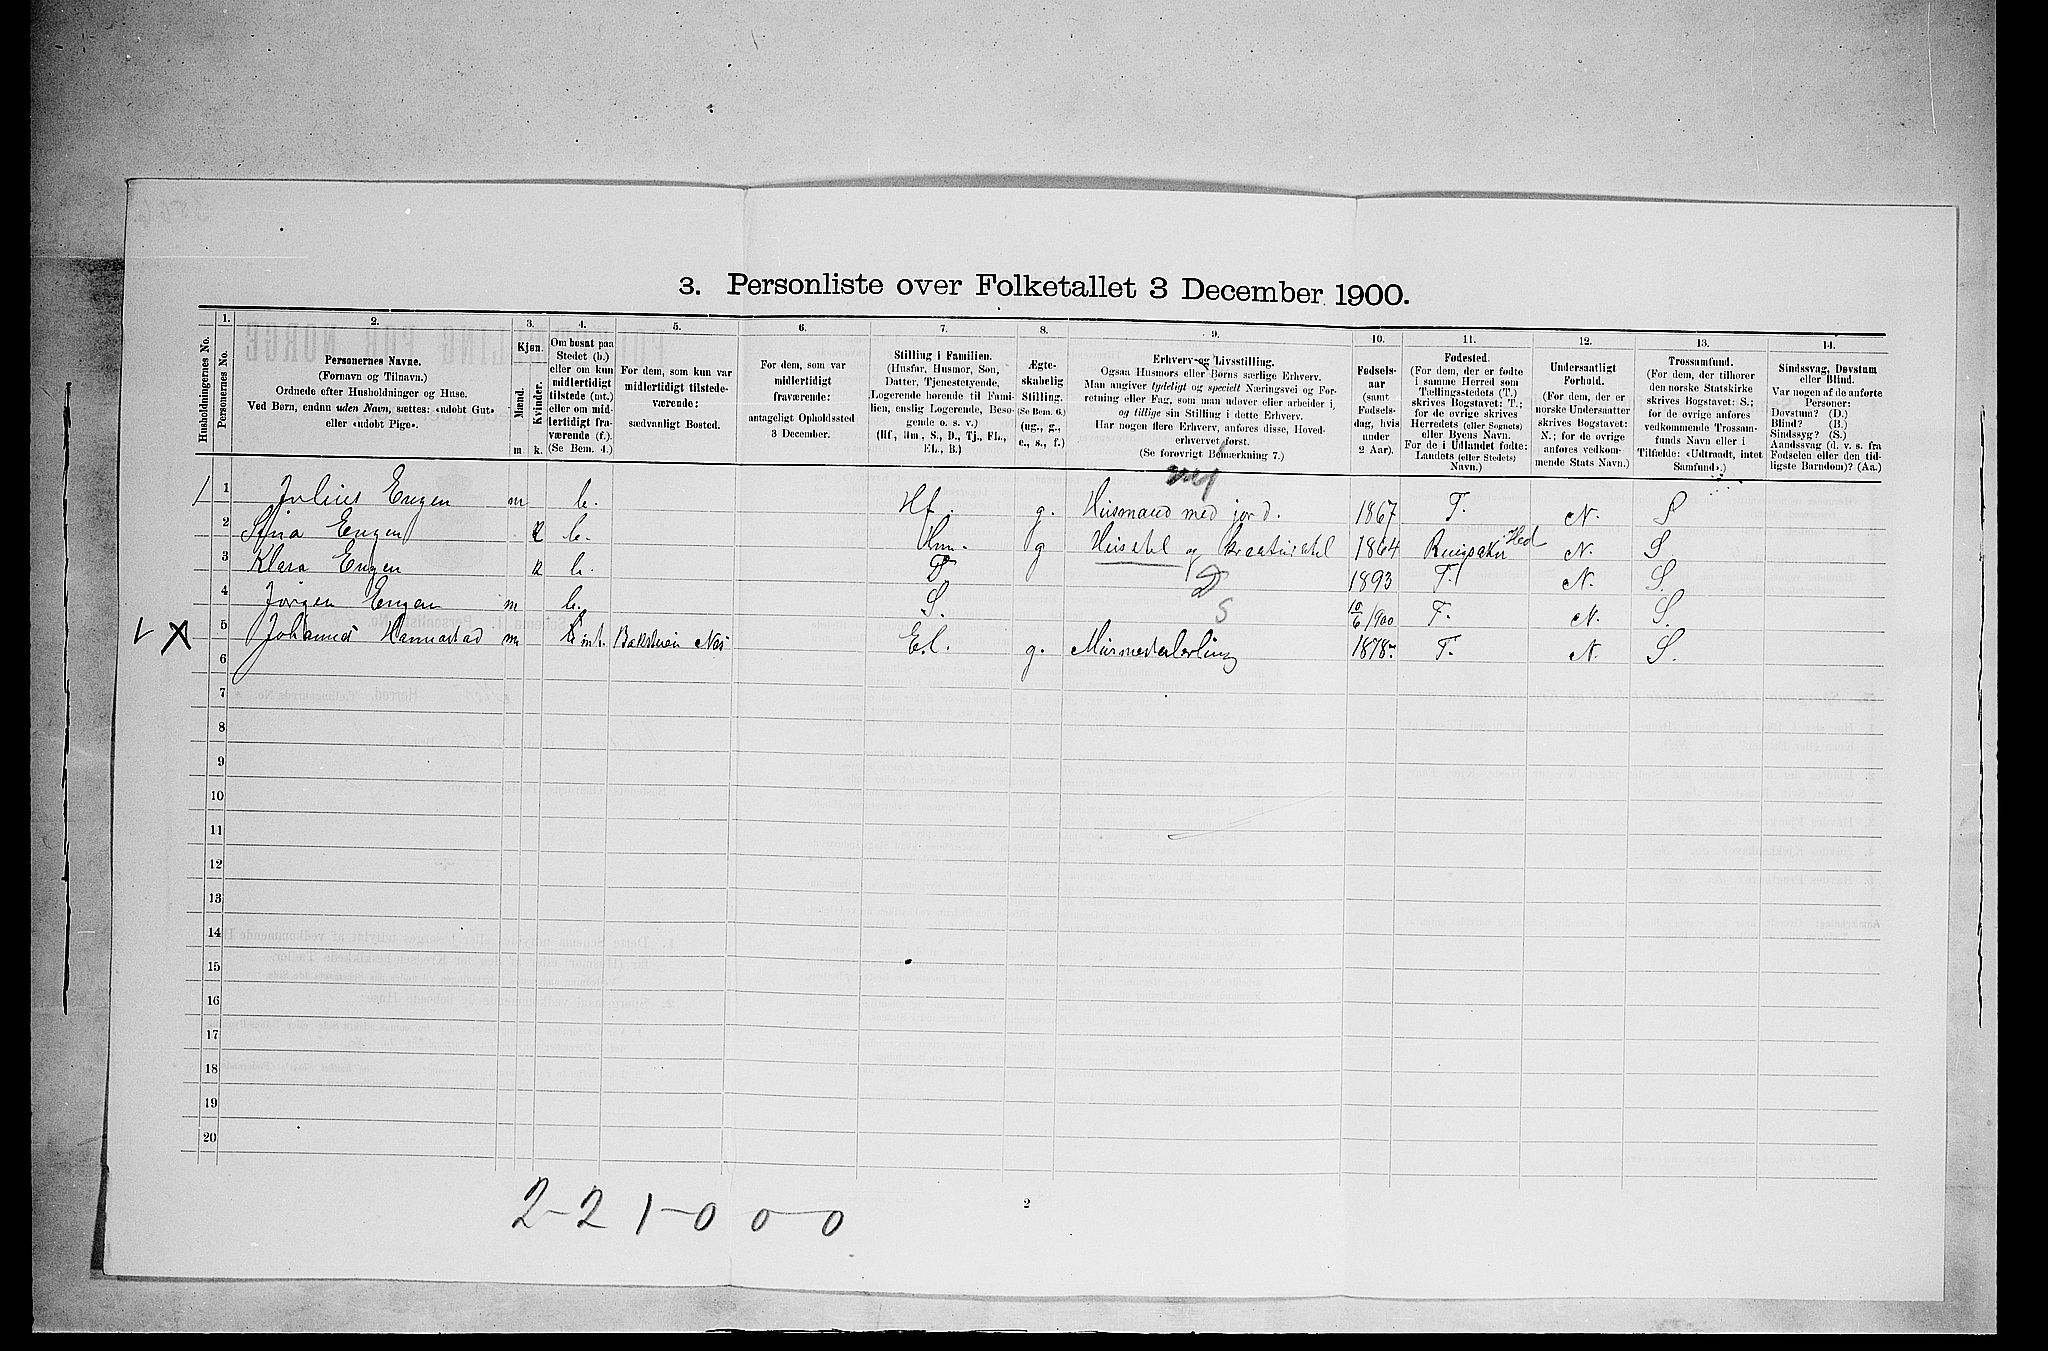 3. Personliste over Folketallet 3 December 1900.
Husholdningernes No.
1.
Personernes No.
2.
Personernes Navne.
(Fornavn og Tilnavn.)
Ordnede efter Husholdninger og Huse.
Ved Børn, endnu uden Navn, sættes: «udøbt Gut»
eller «udøbt Pige».
3.
Kjøn.
Mænd.
Kvinder.
m
k.
4.
Om bosat paa
Stedet (b.)
eller om kun
midlertidigt
tilstede (mt.)
eller om mid-
lertidigt fra-
værende (f.).
(Se Bem. 4.)
5.
For dem, som kun var
midlertidigt tilstede-
værende:
sædvanligt Bosted.
6.
For dem, som var
midlertidigt
fraværende:
antageligt Opholdssted
3 December.
7.
Stilling i Familien.
(Husfar, Husmor, Søn,
Datter, Tjenestetyende,
Logerende hørende til Fami-
lien, enslig Logerende, Besø-
gende o. s. v.)
(Hf., Hm., S., D., Tj., FL.,
EL., B.)
8.
Ægte-
skabelig
Stilling.
(Se Bem. 6.)
(ug., g.,
e., s., f.)
9.
Erhverv og Livsstilling.
Ogsaa Husmors eller Børns særlige Erhverv.
Man angiver tydeligt og specielt Næringsvei og For-
retning eller Fag, som man udøver eller arbeider i,
og tillige sin Stilling i dette Erhverv.
Har nogen flere Erhverv, anføres disse, Hoved-
erhvervet først.
(Se forøvrigt Bemærkning 7.)
10.
Fødsels-
aar
(samt
Fødsels-
dag, hvis
under
2 Aar).
11.
Fødested.
(For dem, der er fødte
i samme Herred som
Tællingsstedets (T.)
skrives Bogstavet: T.;
for de øvrige skrives
Herredets (eller Sognets)
eller Byens Navn.
For de i Udlandet fødte:
Landets (eller Stedets)
Navn.)
12.
Undersaatligt
Forhold.
(For dem, der er
norske Undersaatter
skrives Bogstavet:
N.; for de øvrige
anføres vedkom-
mende Stats Navn.)
13.
Trossamfund.
(For dem, der tilhører
den norske Statskirke
skrives Bogstavet: S.;
for de øvrige anføres
vedkommende Trossam-
funds Navn eller i
Tilfælde: «Udtraadt, intet
Samfund».)
14.
Sindssvag, Døvstum
eller Blind.
Var nogen af de anførte
Personer:
Døvstum? (D.)
Blind? (B.)
Sindssyg? (S.)
Aandssvag (d. v. s. fra
Fødselen eller den tid-
ligste Barndom)? (Aa.)
1 Julius Engen m b. Hf. g. Husmand med jord. 1867 T. N. S
2 Engen k b. Hm. g Husstel og kreaturstel 1864 Ringsaker Hed N. S
3 Klara Engen k b. D D 1893 T. N. S.
4 Jørgen Engen m b. S. S 10/6 1900 T. N. S.
5 Johannes m mt. Nes E.l. g. Murmesterlerling 1878 T. N. S.
6
7
8
9
10
11
12
13
14
15
16
17
18
19
20
2-2 1-0 0-0
2